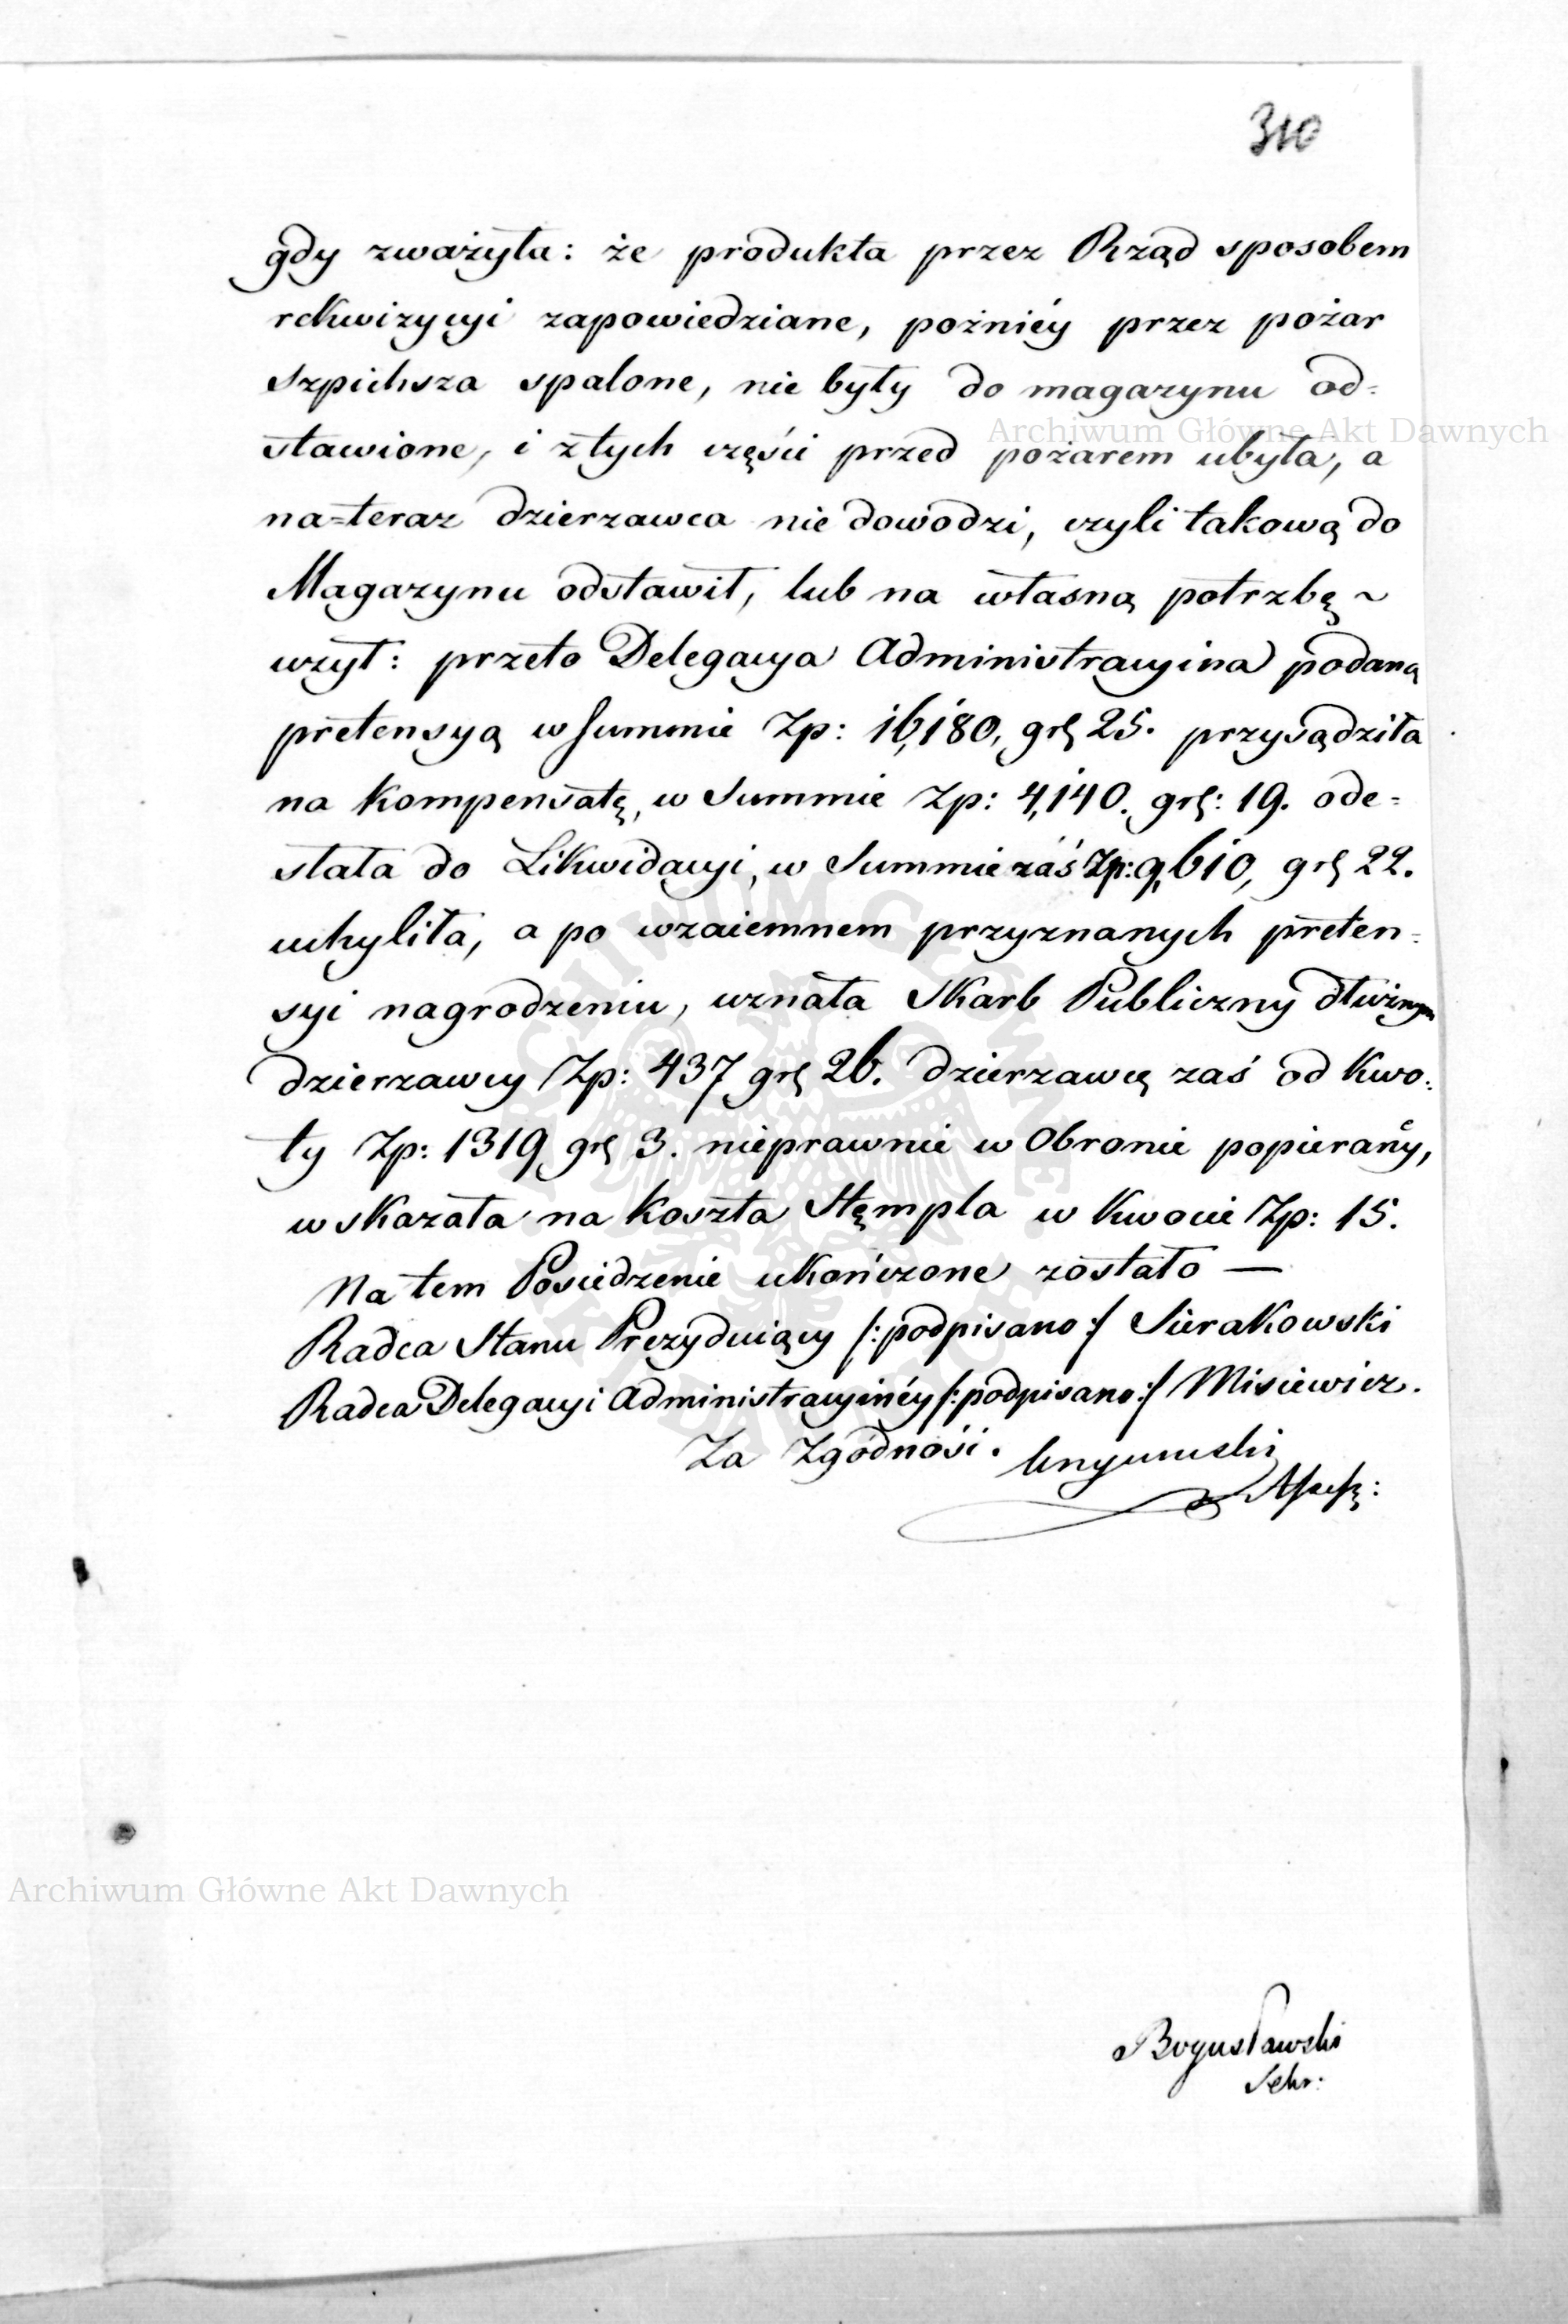 310
gdy zważyła: że produkta przez Rząd sposobem
rekwizycyi zapowiedziane, poźniéy przez pożar
Szpichrza spalone, nie były do magazynu od=
stawione, i z tych części przed pożarem ubyła, a
na=teraz dzierzawca nie dowodzi, czyli takową do
Magazynu odstawił, lub na własną potrzbę ~
użył: przeto Delegacya Administracyina podaną
pretensyą w Summie Zp: 16,180, gr 25. przysądziła
na kompensatę, w Summie Zp: 4,140. gr: 19. ode=
słała do Likwidacyi, w Summie zaś Zp: 9,610, gr 22.
uchyliła, a po wzaiemnem przyznanych preten=
syi nagrodzeniu, uznała Skarb Publiczny dłużnym
dzierzawcy Zp: 437 gr 26. dzierzawcę zaś od kwo=
ty Zp: 1319 gr 3. nieprawnie w Obronie popieraney,
wskazała na koszta Stępla w Kwocie Zp: 15.
Na tem Posiedzenie ukończone zostało —
Radca Stanu Prezyduiący /:podpisano:/ Sierakowski
Radca Delegacyi Administracyinéy /:podpisano:/ Misiewicz.
Za Zgodność.
Bogusławski
Sekr:
Archiwum Główne Akt Dawnych
Archiwum Główne Akt Dawnych